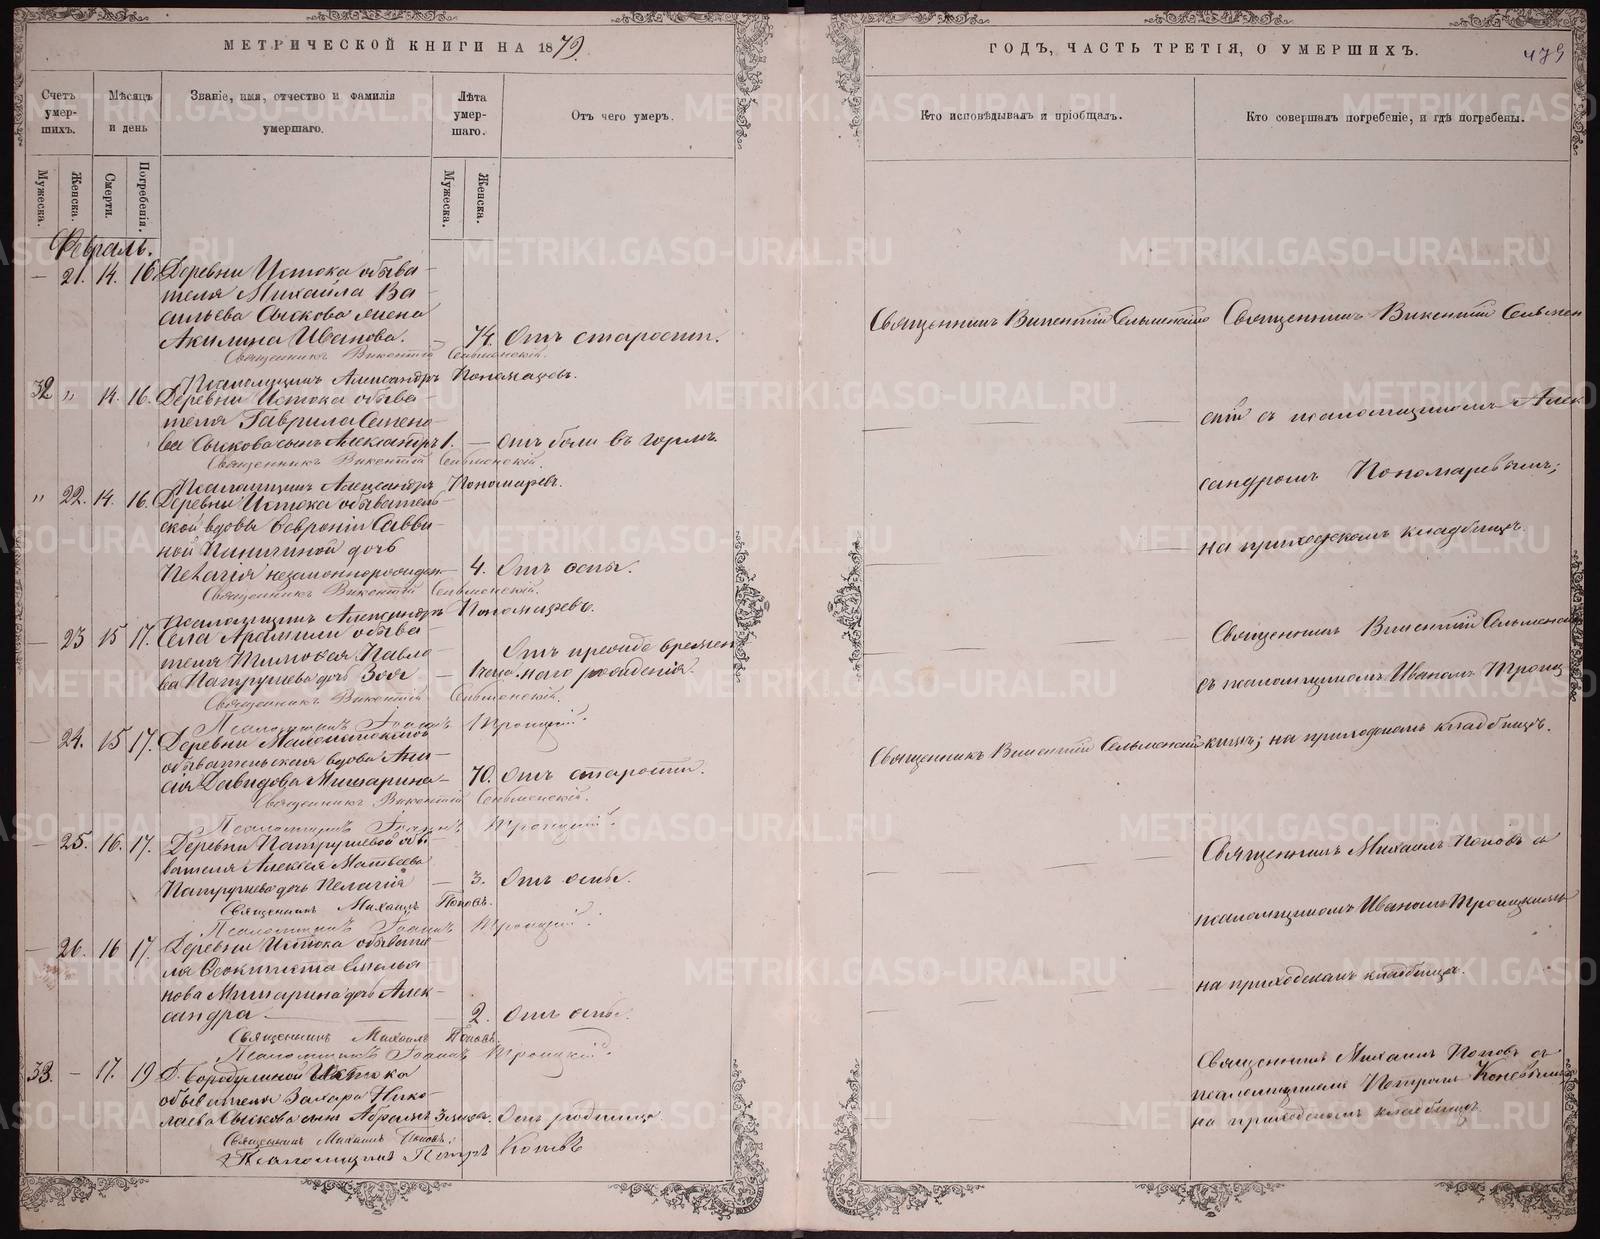 МЕТРИЧЕСКОЙ КНИГИ НА 1879.
Счетъ умер-шихъ.
Мѣсяцъ и день
Званіе, имя, отчество и фамилія умершаго.
Лѣта умер-шаго.
Отъ чего умеръ.
Мужеска.
Женска.
Смерти.
Погребенія.
Мужеска.
Женска.
Февраль.
— 21. 14. 16. Деревни Истока обыва-
теля Михаила Ва-
сильева Сыскова жена
Акилина Иванова. — 74. Отъ старости.
Священникъ Викентій Сельменскій.
Псаломщикъ Александръ Пономаревъ.
32 " 14. 16. Деревни Истока обыва-
теля Гаврила Семено-
ва Сыскова сынъ Александръ 1. — Отъ боли въ горлѣ.
Священникъ Викентій Сельменскій.
Псаломщикъ Александръ Пономаревъ.
" 22. 14. 16. Деревни Истока обыватель-
ской вдовы Февроніи Савви-
ной дочь
Пелагія незаконнорожден. 4. Отъ оспы.
Священникъ Викентій Сельменскій.
Псаломщикъ Александръ Пономаревъ.
— 23 15 17. Села Арамили обыва-
теля Тимофея Павло-
ва Патрушева дочь Зоя — Отъ преждевремен
наго рожденія.
Священникъ Викентій Сельменскій.
Псаломщикъ Іоаннъ Троицкій.
— 24. 15 17. Деревни
обывательская вдова
Давидова Мишарина — 70. Отъ старости.
Священникъ Викентій Сельменскій.
Псаломщикъ Іоаннъ Троицкій.
— 25. 16. 17. Деревни Патрушевой обы-
вателя Алексѣя Матвѣева
Патрушева дочь Пелагія — 3. Отъ оспы.
Священникъ Михаилъ Поповъ.
Псаломщикъ Іоаннъ Троицкій.
— 26. 16 17. Деревни Истока обывате-
ля Феоктиста Емелья
нова Мишарина дочь Алек-
сандра — 2. Отъ оспы.
Священникъ Михаилъ Поповъ.
Псаломщикъ Іоаннъ Троицкій.
33. — 17. 19 Д. Бородулиной
обывателя Захара Нико-
лаева Сыскова сынъ Абрамъ Отъ родимца
Священникъ Михаилъ Поповъ.
Псаломщикъ Петръ
ГОДЪ, ЧАСТЬ ТРЕТІЯ, О УМЕРШИХЪ.
479
Кто исповѣдывалъ и пріобщалъ.
Кто совершалъ погребеніе, и гдѣ погребены.
Священникъ Викентій Сельменскій
Священникъ Викентій Сельмен
скій съ псаломщикомъ Алек
сандромъ Пономаревымъ;
на приходскомъ кладбищѣ.
Священникъ Викентій Сельменскій
съ псаломщикомъ Иваномъ Троиц
Священникъ Викентій Сельменскій
кимъ; на приходскомъ кладбищѣ.
Священникъ Михаилъ Поповъ съ
псаломщикомъ Иваномъ Троицкимъ
на приходскомъ кладбищѣ.
Священникъ Михаилъ Поповъ съ
псаломщикомъ Петромъ
на приходскомъ кладбищѣ.
METRIKI.GASO-URAL.RU